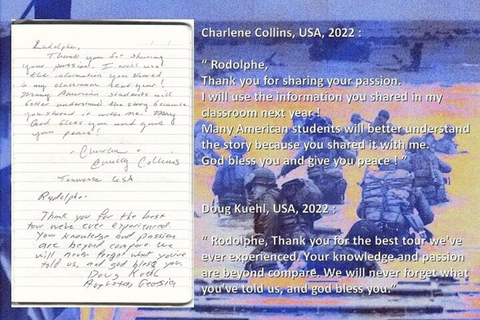 Rodolphe,
Thank you for sharing
your passion. I will use
the information you shared
in my classroom next year!
Many American students will
better understand the story because
you shared it with me. May
God bless you and give
you peace!
Charlene
Collins
USA
Rodolphe-
Thank you for the best
tour we've ever experienced
Your knowledge and passion
are beyond compare we
will never forget what you've
told us, and god bless you
Doug Kuehl
Georgia
Charlene Collins, USA, 2022 :
“ Rodolphe,
Thank you for sharing your passion.
I will use the information you shared in my
classroom next year !
Many American students will better understand
the story because you shared it with me.
God bless you and give you peace ! ”
Doug Kuehl, USA, 2022 :
“ Rodolphe, Thank you for the best tour we’ve
ever experienced. Your knowledge and passion
are beyond compare. We will never forget what
you’ve told us, and god bless you.”